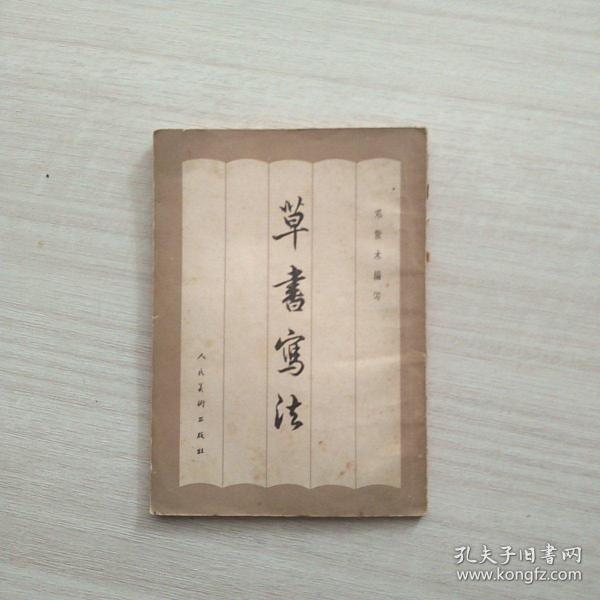 邓散木编写
草書寫法
人民美術出版社
孔夫子旧書网
www.kongfz.com